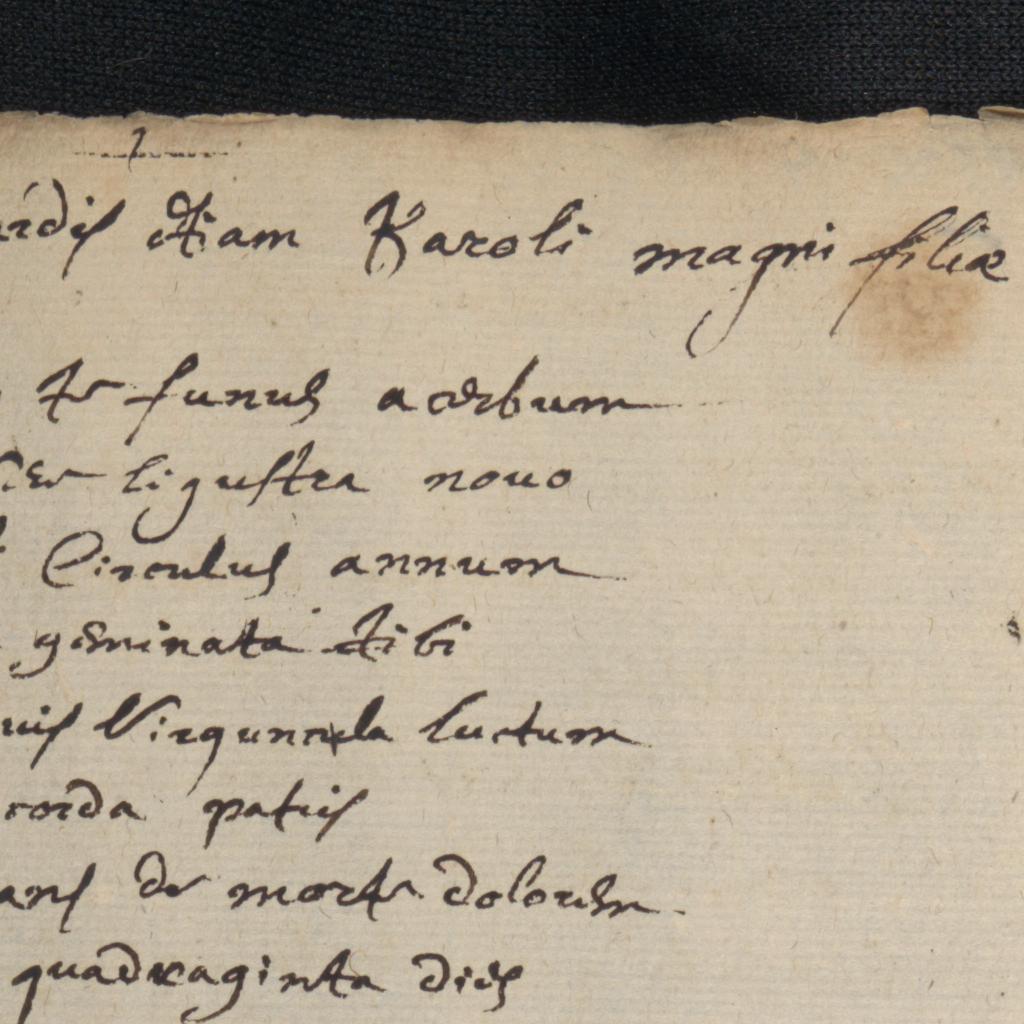 rdis etiam Karoli magni filiæ
te funus acerbum
ere ligustra nouo
Circulus annum
geminata tibi
uis Virguncula luctum
corda patris
ans de morte dolorem
quadraginta dies